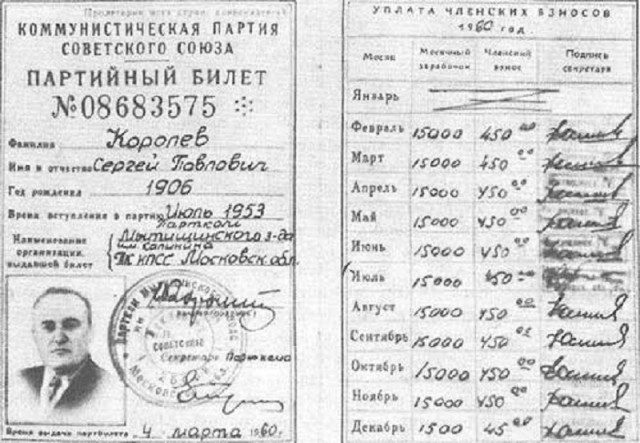 Пролетарии всех стран, соединяйтесь!
КОММУНИСТИЧЕСКАЯ ПАРТИЯ
СОВЕТСКОГО СОЮЗА
ПАРТИЙНЫЙ БИЛЕТ
№08683575
Фамилия Королев
Имя и отчество Сергей Павлович
Год рождения 1906
Время вступления в партию Июль 1953
Наименование организации, выдавшей билет
партком
Мытищинского з-да
им. Калинина
КПСС Московск обл.
Секретарь Парткома
Время выдачи партбилета 4 марта 1960 г.
УПЛАТА ЧЛЕНСКИХ ВЗНОСОВ
1960 год.
Месяц Месячный заработок Членский взнос Подпись секретаря
Январь
Февраль 15000 450 00
Март 15000 450 00
Апрель 15000 450 00
Май 15000 450 00
Июнь 15000 450 00
Июль 15000 450 00
Август 15000 450 00
Сентябрь 15000 450 00
Октябрь 15000 450 00
Ноябрь 15000 450 00
Декабрь 1500 45 00